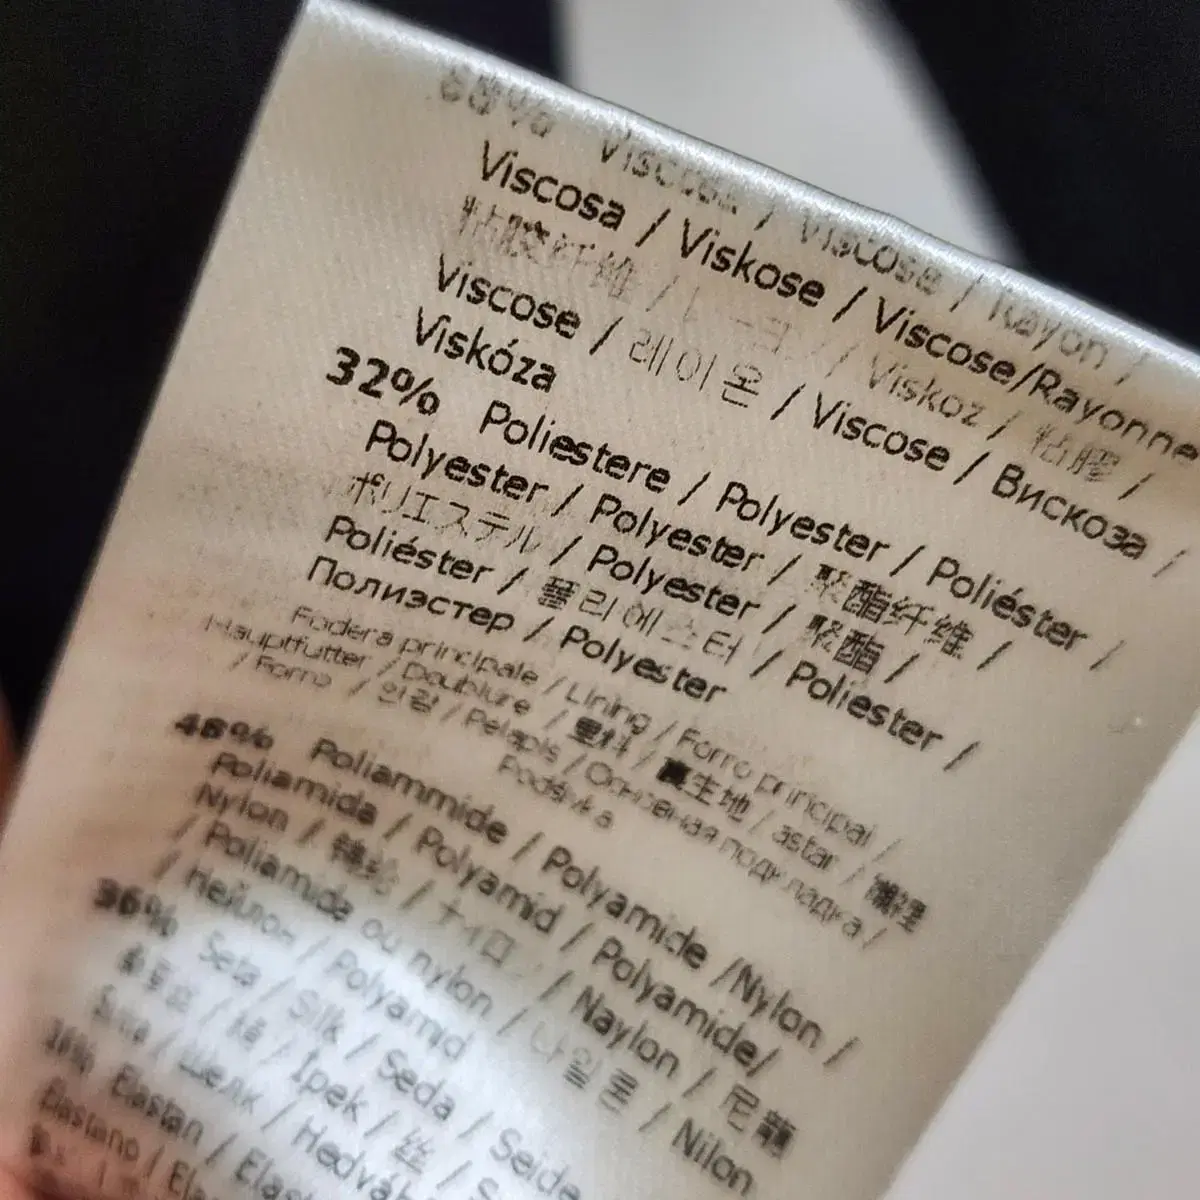 68% Viscosa / Viscose / Rayon /
Viscosa / Viskose / Viscose/Rayonne
粘胶纤维 / / Viskoz / 粘膠 /
Viscose / 레이온 / Viscose / Вискоза /
Viskóza
32% Poliestere / Polyester / Poliéster /
Polyester / Polyester / 聚酯纤维 /
ポリエステル / Polyester / 聚酯 /
Poliéster / 폴리에스터 / Poliester /
Полиэстер / Polyester
Fodera principale / Lining / Forro principal /
Hauptfutter / Doublure / 里料 / 裏生地 / astar /
/ Forro / 안감 / Pelapis / Основная подкладка /
Podšívka
48% Poliammide / Polyamide /Nylon /
Poliamida / Polyamid / Polyamide/
Nylon / 锦纶 / ナイロン / Naylon / 尼龍
/ Poliamida ou nylon / 나일론 / Nilon
/ Нейлон / Polyamid
36% Seta / Silk / Seda / Seide
/ Ipek / 丝 /
/ Шелк /
16% Elastan /
Elastano /